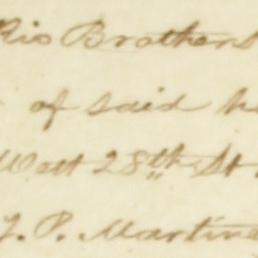 his Brothers
of said h
West 28th St.
J. P. Martin